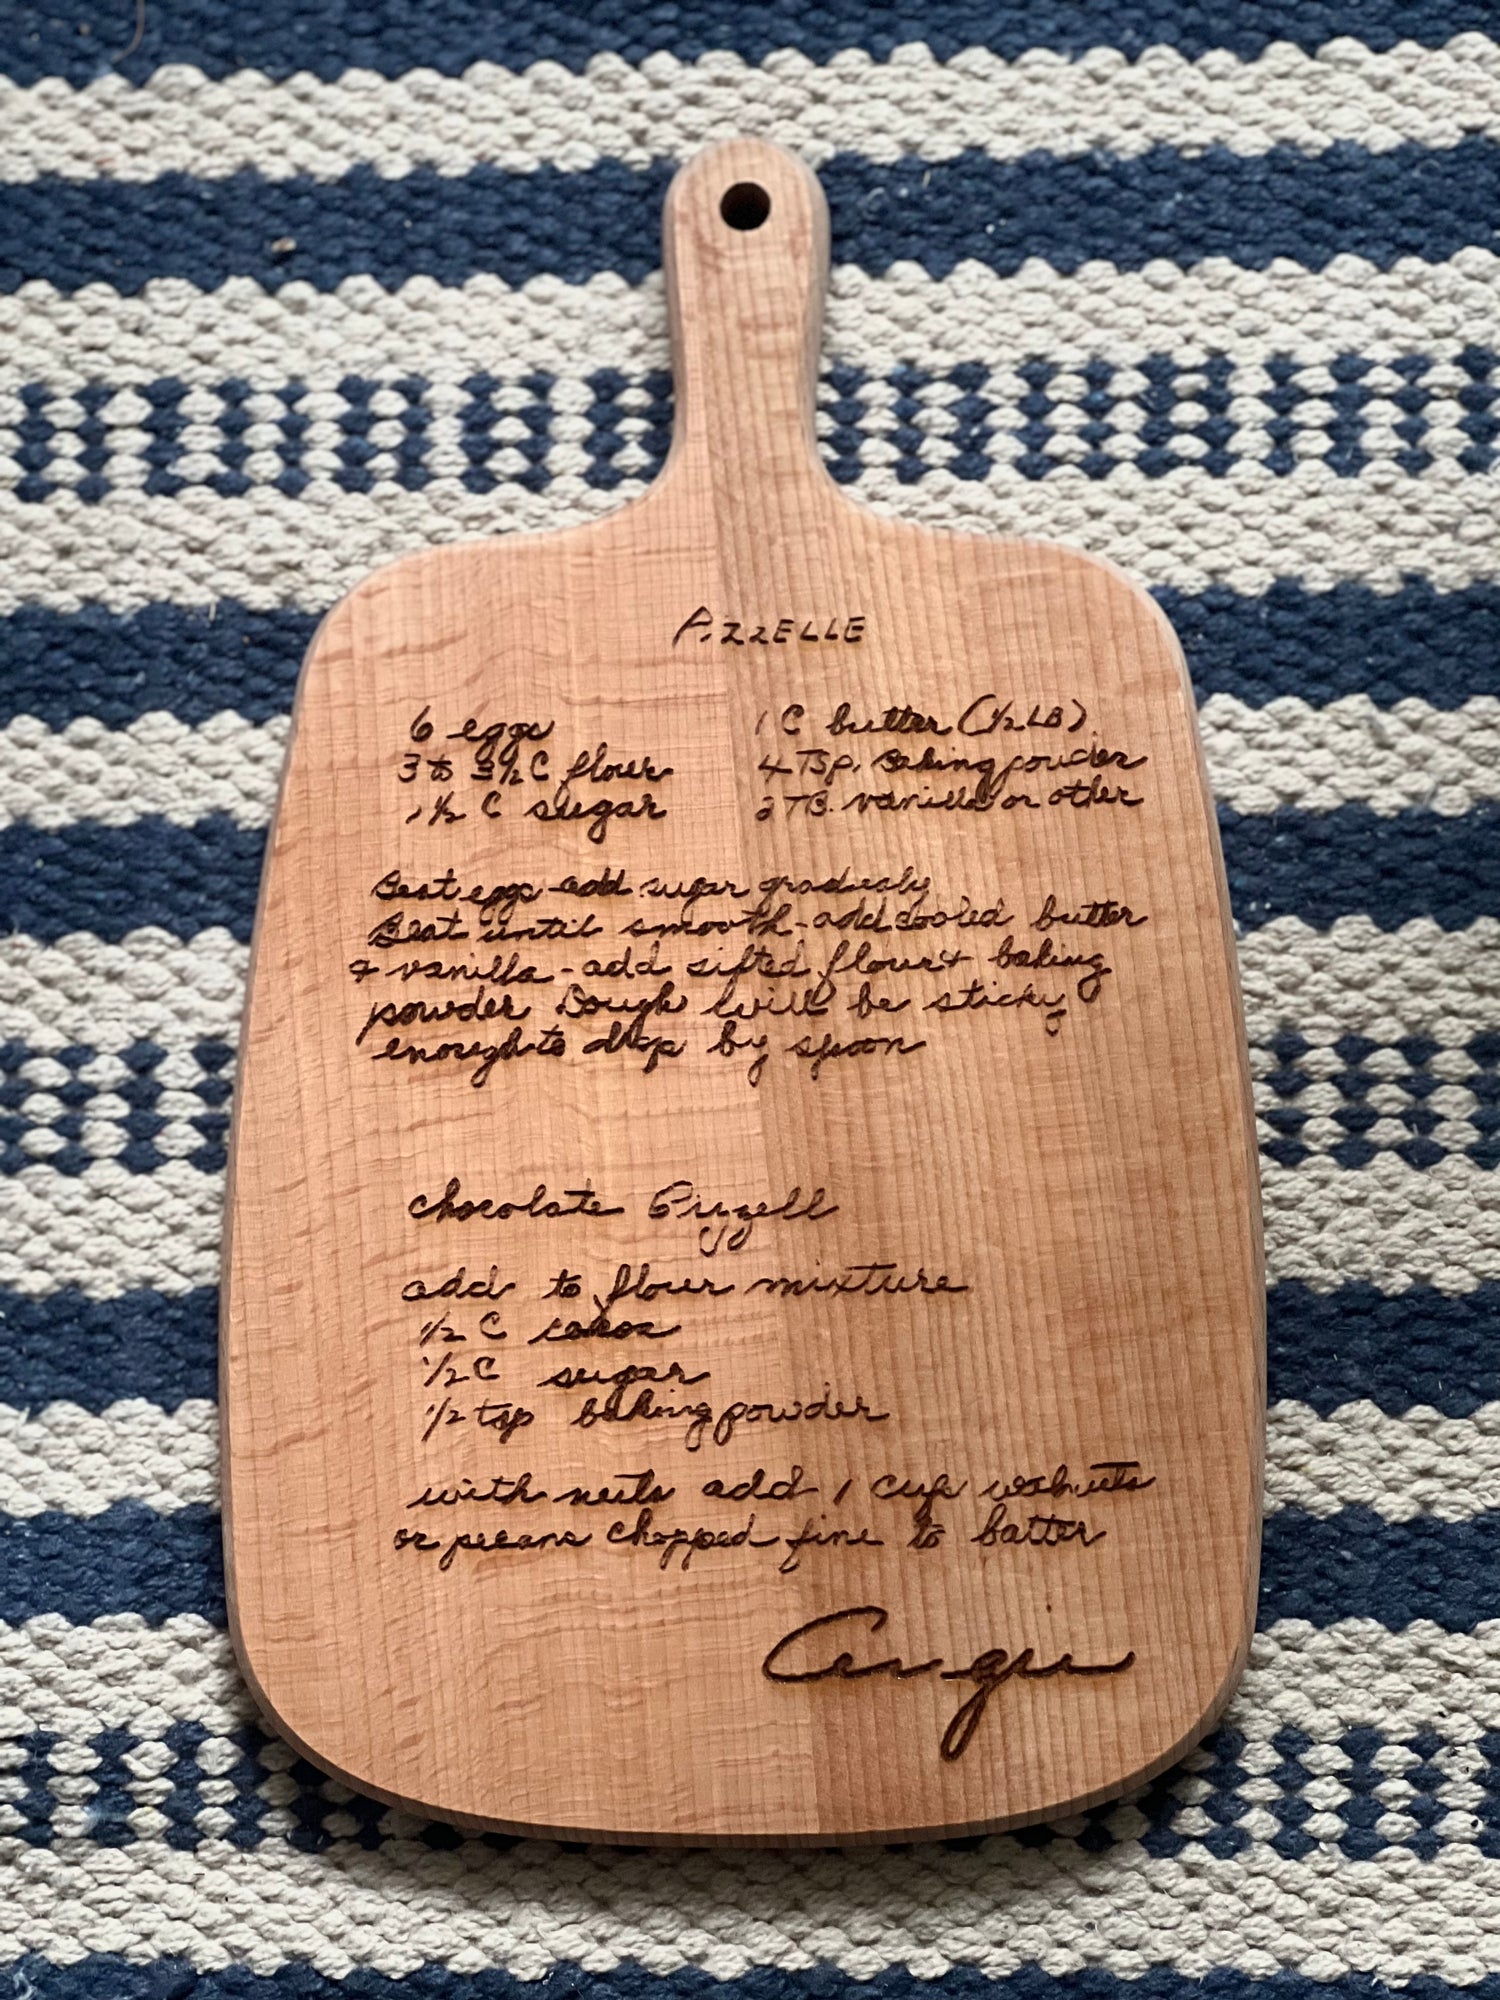 PIZZELLE
6 eggs
3 to 3½ C flour
1½ C sugar
1 C butter (½ LB)
4 Tsp. Baking powder
2 TB. vanilla or other
Beat eggs - add sugar gradualy
Beat until smooth - add cooled butter
+ vanilla - add sifted flour + baking
powder Dough will be sticky
enough to drop by spoon
chocolate Pizzell
add to flour mixture
1/2 C cocoa
1/2 C sugar
1/2 tsp baking powder
with nuts add 1 cup walnuts
or pecans chopped fine to batter
Angie